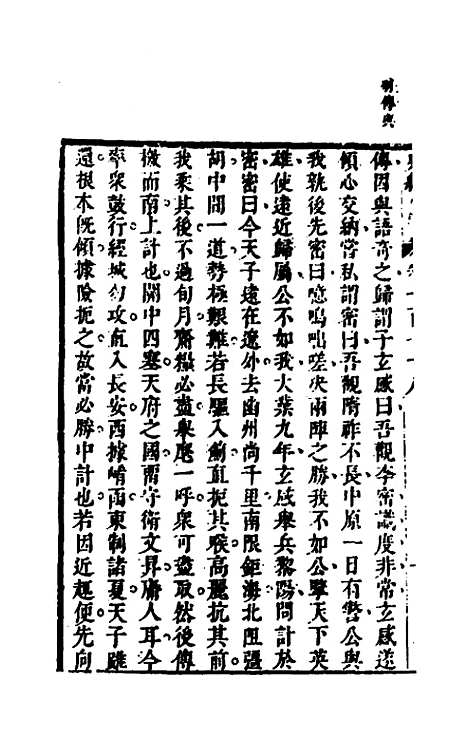 別傳與
傳因與語奇之歸謂子玄感曰吾觀李密識度非常玄感遂
傾心交納嘗私謂密曰吾觀隋祚不長中原一日有警公與
我孰後先密曰噫嗚咄嗟決兩陣之勝我不如公擥天下英
雄使遠近歸屬公不如我大葉九年玄感舉兵黎陽問計於
密密曰今天子遠在遼外去幽州尚千里南限鉅海北阻彊
胡中間一道勢極艱難若長驅入薊直扼其喉高麗抗其前
我乘其後不過旬月齎糧必盡舉麾一呼眾可盡取然後傳
檄而南上計也關中四塞天府之國留守衛文昇庸人耳今
率衆鼓行經城勿攻直入長安西據崤函東制諸夏天子雖
還根本既傾據險扼之故當必勝中計也若因近趨便先向